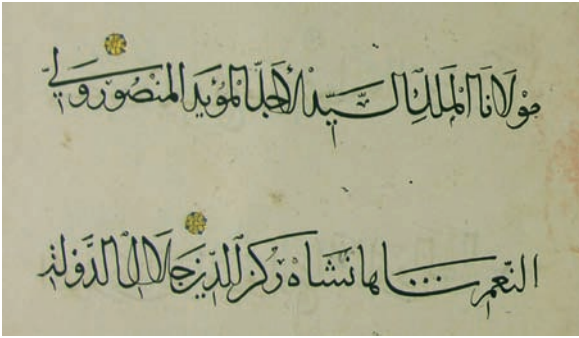 مَوْلَانَا الْمَلَكِ السَّيِّدِ الْأَجَلِّ الْمُؤَيَّدِ الْمَنْصُورِ وَلِيِّ
النِّعَمِ شَاهَانْشَاهْ رُكْنِ الدِّينِ جَلَالِ الدَّوْلَةِ